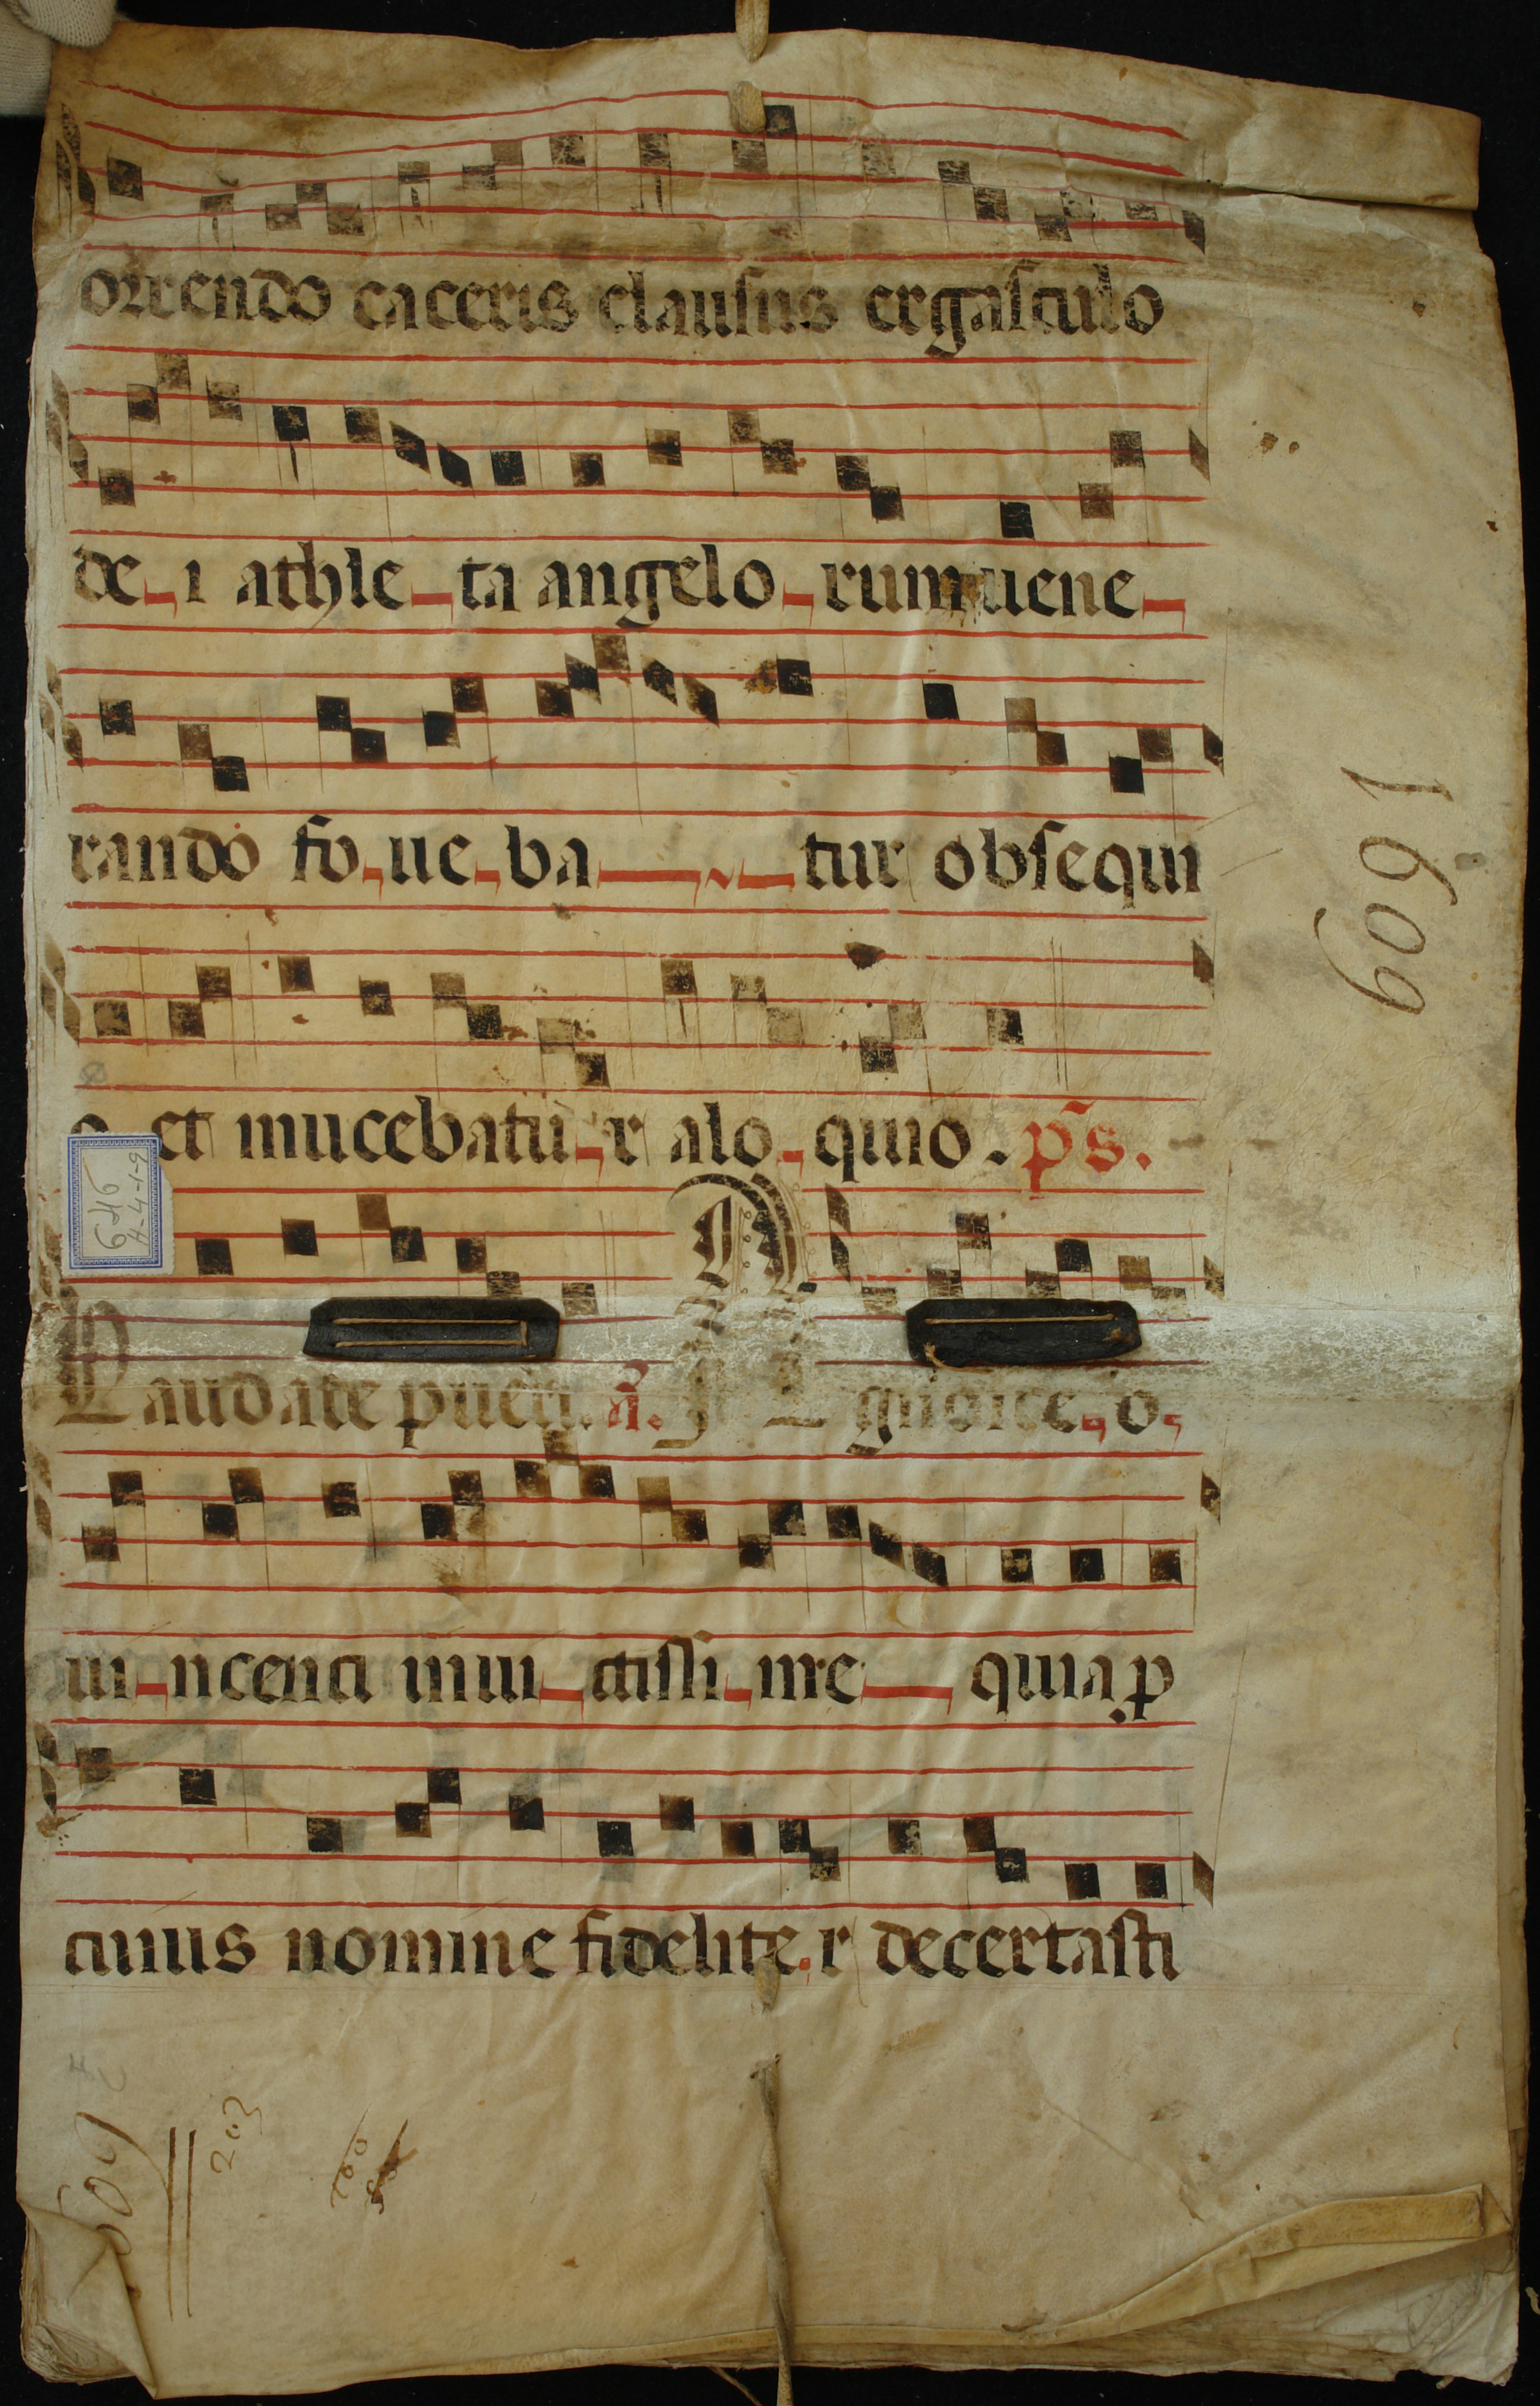 orrendo caceris clausus ergasculo
de-i athle-ta angelo-rum uene-
rando fo-ue-ba-tur obsequi
o et mucebatu-r alo-quio. ps.
Laudate pueri. a. I L gnosce-o-
ui-ncenti inui-ctissi-me quia p
cuius nomine fidelite-r decertasti
1609
646
A-4-1-9
609
203